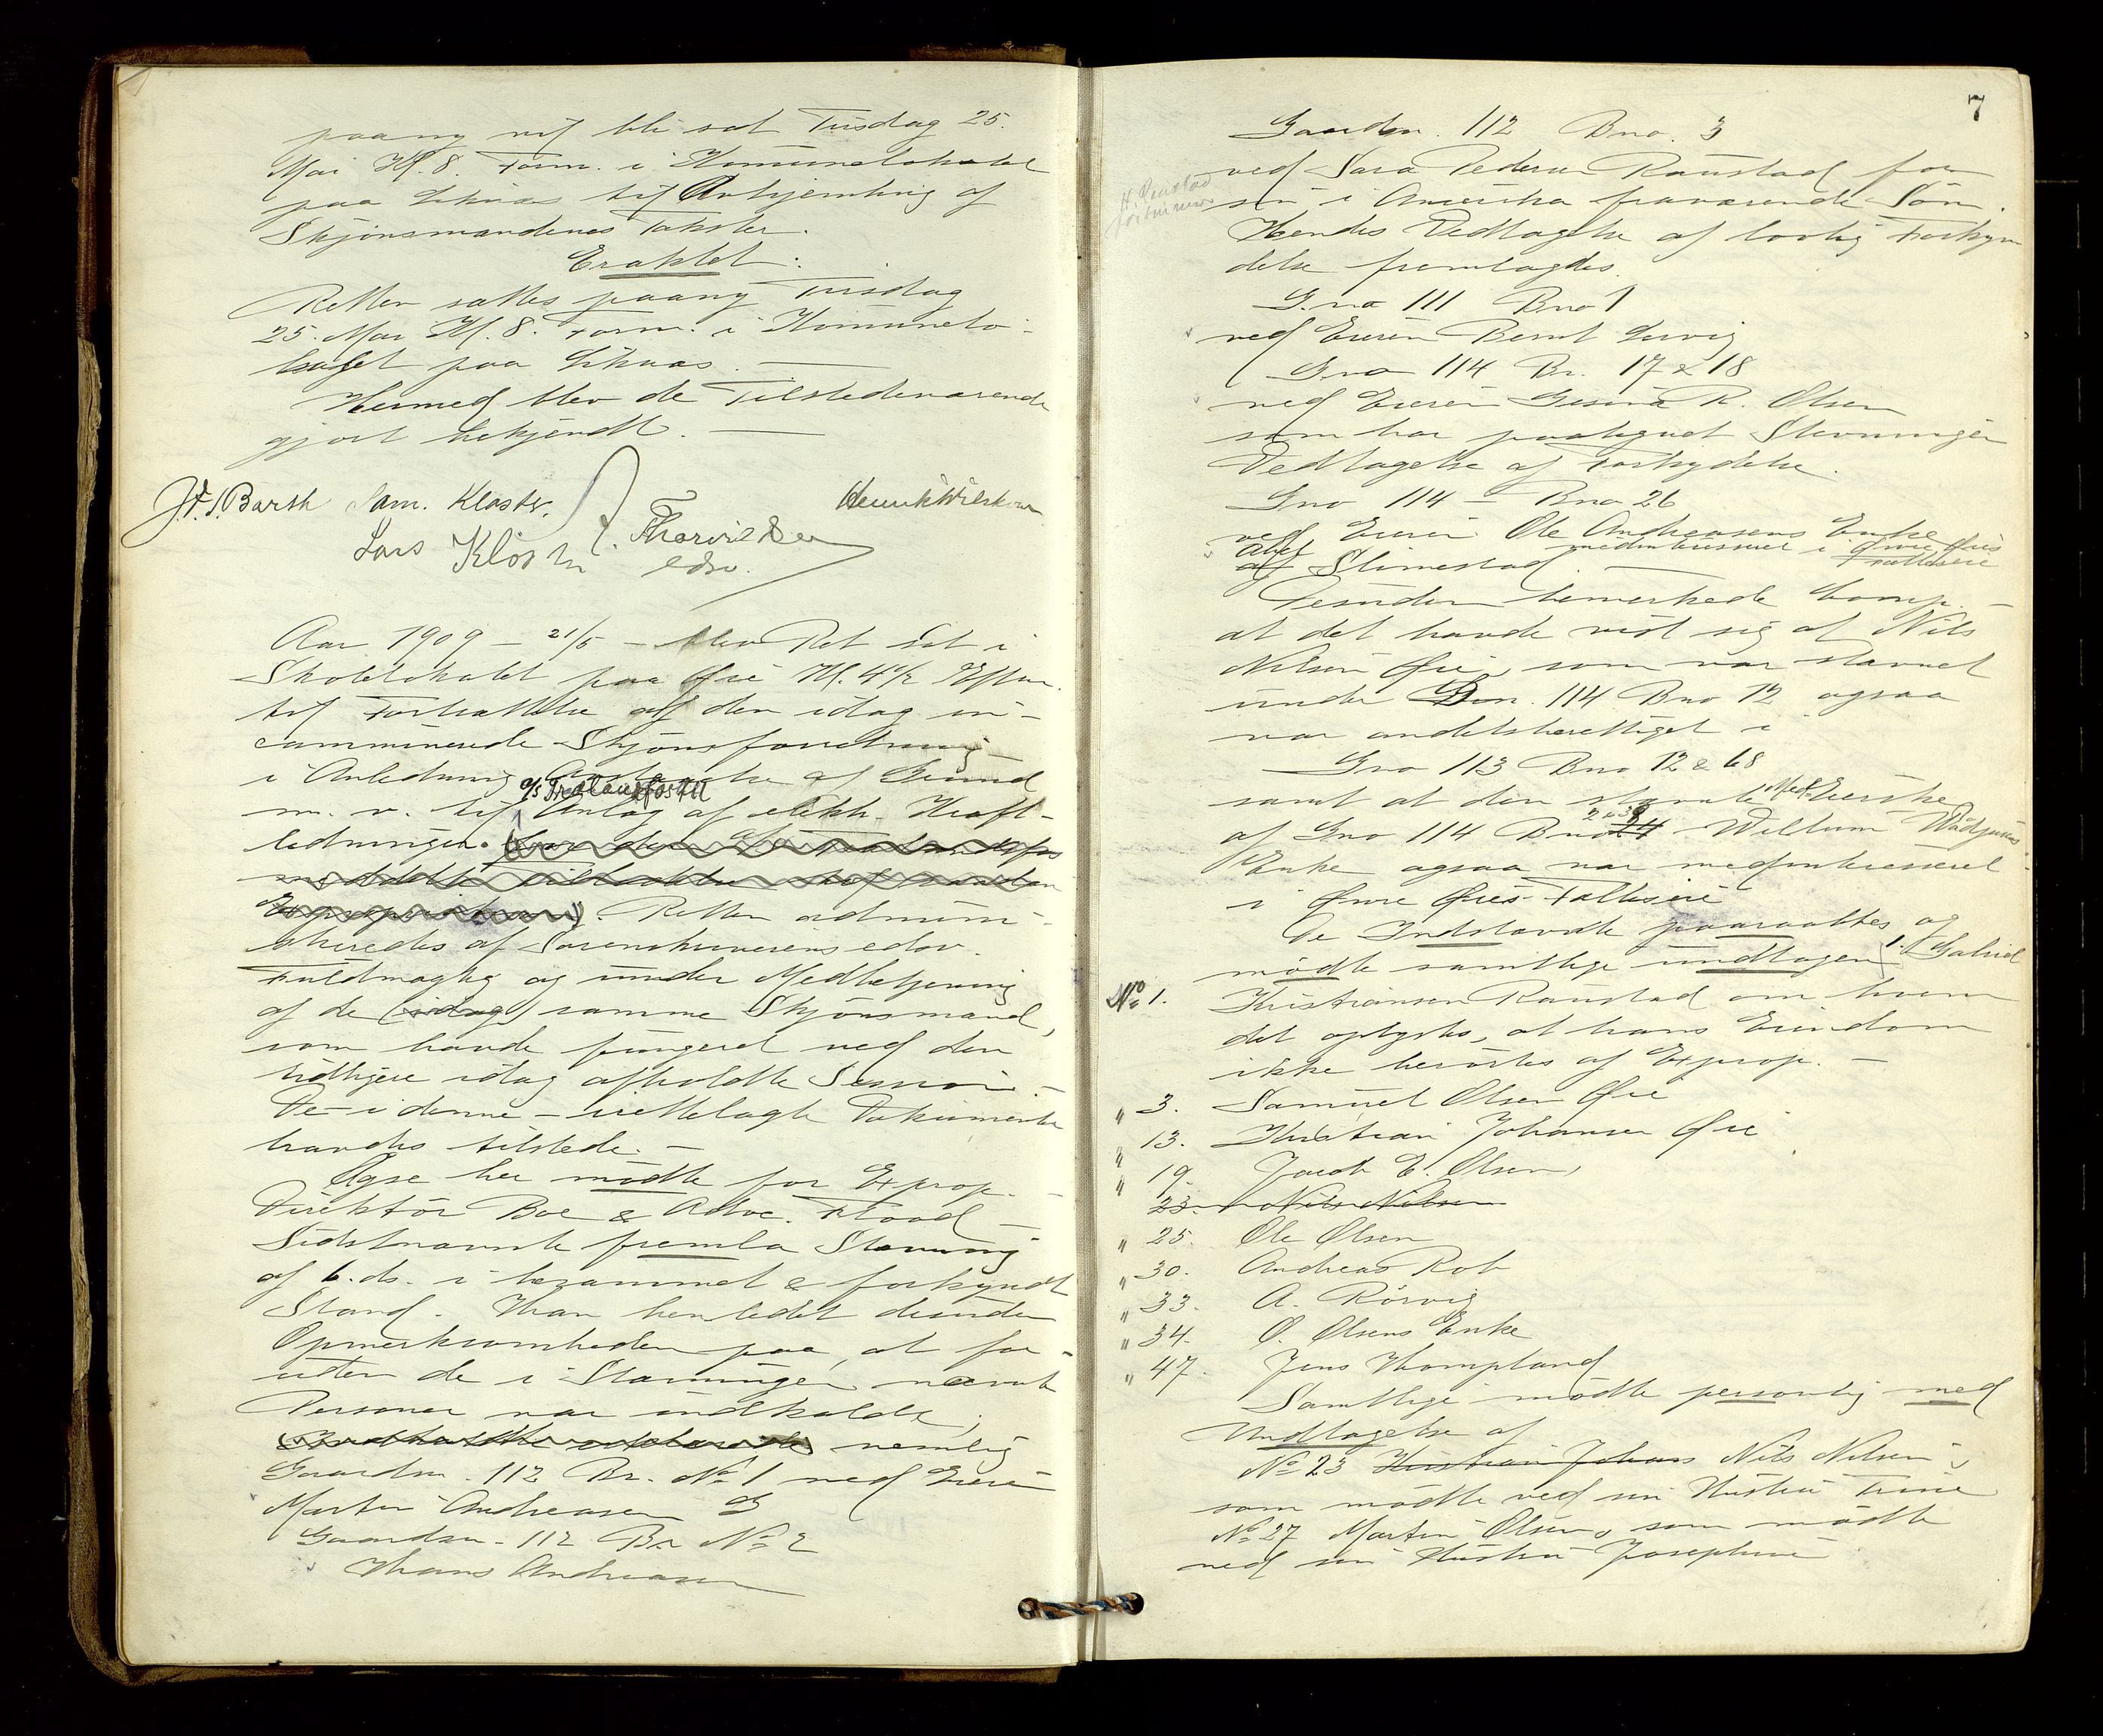 paany vil bli sat Tirsdag 25.
Mai Kl. 8. Form. i Komunelokalet
paa Liknes til Avhjemling af
Skjönsmændenes Takster.
Eraktet:
Retten sættes paany Tirsdag
25. Mai Kl. 8. Form. i Komunelo-
kalet paa Liknes. —
Hermed blev de Tilstedeværende
gjort bekjendt. —
J. F. S. Barth Sam. Kloster.
Lars Kloster
edsv.
Aar 1909 - 21/5 - blev Ret sat i
Skolelokalet paa Øie Kl. 4 1/2 Efterm.
til Fortsættelse af den idag in-
caminerede Skjönsforretning
i Anledning Avstaaelse af Grund
m. v. til A/S Trælandsfos Anlæg af elektr. Kraft-
ledninger.
Retten admini-
streredes af Sorenskriverens edsv.
Fuldmægtig og under Medbetjening
af de (idag) samme Skjönsmænd,
som havde fungeret ved den
tidligere idag afholdte Session -
De - i denne - irettelagte Dokumenter
havdes tilstede. -
Ogsaa her mödte for Exprop. -
Direktör Boe & Adv. Flood -
Sidstnævnte fremla Stevning
af 6. ds. i berammet & forkyndt
Stand. Han henledet desuden
Opmerksomheden paa, at for-
uten de i Stevningen nævnte
Personer var indkaldt,
nemlig
Gaardsn. 112 Br. No 1 ved Eieren
Martin Andreasen &
Gaardsn. 112 Br No 2
Hans Andreasen
7
Gaardsn. 112 Bno. 3
ved Sara Pedersen Raustad for
sin i Amerika fraværende Sön.
Hendes Vedtagelse af lovlig Forkyn
delse fremlagdes.
G.no 111 Bno 1
ved Eieren Bernt Lervig
Gno 114 Br. 17 & 18
ved Eieren Gesina R. Olsen
som har paategnet Stevningen
Vedtagelse af Forkydelse.
Gno 114 - Bno 26
ved Eieren Ole Andreasens Enke
af Slimestad. medinteresseret i Øvre Øies
Fælleseie
Desuden bemerkede Comp. -
at det havde vist sig at Nils
Nilsen Øie, som var stævnet
under Gn. 114 Bno 12 ogsaa
var andelsberettiget i
Gno 113 Bno 12 & 68
samt at den stevnte Med-Eierske
af Gno 114 Bno 24 Willum
Enke ogsaa var medinteresseret
i Øvre Øies Fælleseie
De Indstævnte paaraabtes og
mödte samtlige undtagen 1. Gabriel
No 1. Kristiansen Raustad om hvem
det oplystes, at hans Eiendom
ikke berörtes af Exprop. -
" 3. Samuel Olsen Øie
" 13. Kristian Johansen Øie
" 19. Jacob E. Olsen,
23. Nils Nilsen
" 25. Ole Olsen
" 30. Andreas Rob
" 33. A. Rörvig
" 34. O. Olsens Enke
" 47. Jens Hompland
Samtlige mödte personlig med
Undtagelse af
No 23 Kristian Johans Nils Nilsen,
som mödte ved sin Hustru Trine
No 27 Martin Olsen, som mödte
ved sin Hustru Josephine